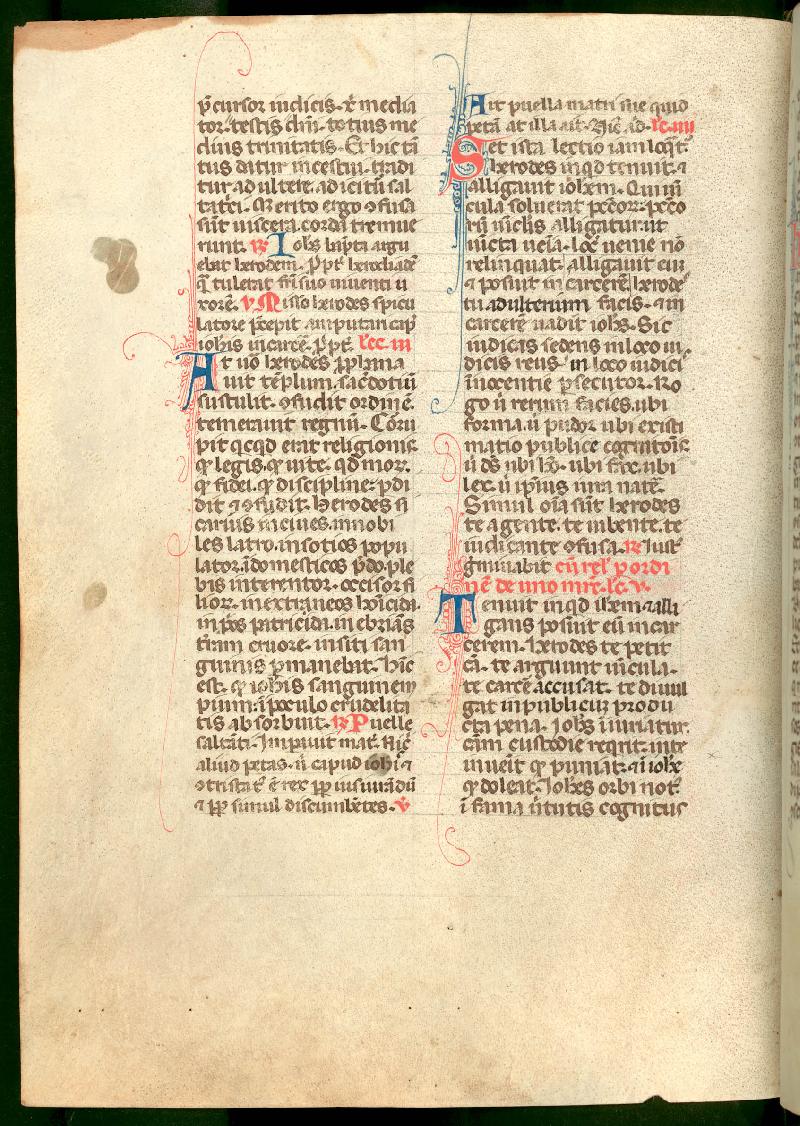 p̄cursor iudicis. ⁊ media
tor. testis dn̄i. totius me
dius trinitatis. Et hic tā
tus datur incestui. tradi
tur adultere. adicitū sal
tat͛ci. Merito ergo ꝯfusa
sūt uiscera. corda tremue
runt. ℞ Iohēs bap̄ta argu
ebat herodem. Ppt̄ herodiadē
q̄ tulerat fr̄i suo uiuenti u
xorē. v Misso herodes spicu
latore p̄cepit amputari cap̄
ioh̄is in carcē. Ppt̄. lec. iii
At uō herodes pp̄hana
uit tēplum. sacdotiū
sustulit. ꝯfudit ordinē.
temerauit regnū. Corru
pit qcqd erat religionis.
q̄ legis. q̄ uite. qd mor͛.
q̄ fidei. q̄ discipline. pdi
dit ⁊ ꝯfudit. Herodes si
carius in ciues. in nobi
les latro. in sotios popu
lator. ī domesticos p̄do. ple
bis interemtor. occisor fi
lior͛. in extraneos homicida.
in p̄os patricida. in ebriās
t̄ram cruore. in siti san
guinis ꝑmanebat. Hinc
est. q̄ ioh̄is sanguinem
pium. ī poculo crudelita
tis absorbuit. ℞ Puelle
saltāti. Impauit mat͛. Nic̄
aliud petas. ñ capud ioh̄i ⁊
ꝯtristat͛ ē rex pp̄ iusiurādū
⁊ pp̄ simul discumbētes. v̄
Ait puella matri sue quid
petā at illa ait. Nic̄ ad. lc. iiii
Set ista lectio iam loq̄t͛.
herodes inqd tenuit. ⁊
alligauit ioh̄em. Qui uī
cula soluerat pc̄cor͛. pc̄co
rū uīclis alligatur. ut
iuncta ueīa. locū uenie nō
relinquat. alligauit eū
⁊ posuit in carcerē. herode
tu adulterium facis. ⁊ in
carcerē uadit ioh̄s. Sic
iudicis sedens in loco iu
dicis reus. in loco iudici
īnocentie ꝑsecutor. Ro
go ū rerum facies. ubi
forma. ū pudor ubi existi
matio publice cognitōis.
ū ds̄ ubi hō. ubi fas. ubi
lex. ū ip̄ius iura nat͛e.
Simul oīa sūt herodes
te agente. te iubente. te
iudicante ꝯfusa. ℞ Iust̄
gmīabit cū rel̄ p ordi
nē de uno mr̄e. lc. v.
Tenuit inqd iōhem. ⁊ alli
gans posuit eū in car
cerem. herodes te petit
cā. te arguunt uicula.
te carcē accusat. te diuul
gat in publicuꝫ produ
cta pena. Ioh̄s iniuriatur.
cām custodie reqrit. inte
inueīt q̄ puniat. ⁊ ī ioh̄e
q̄ doleat. Ioh̄es orbi not͛.
ī fama ūtutis cognitus